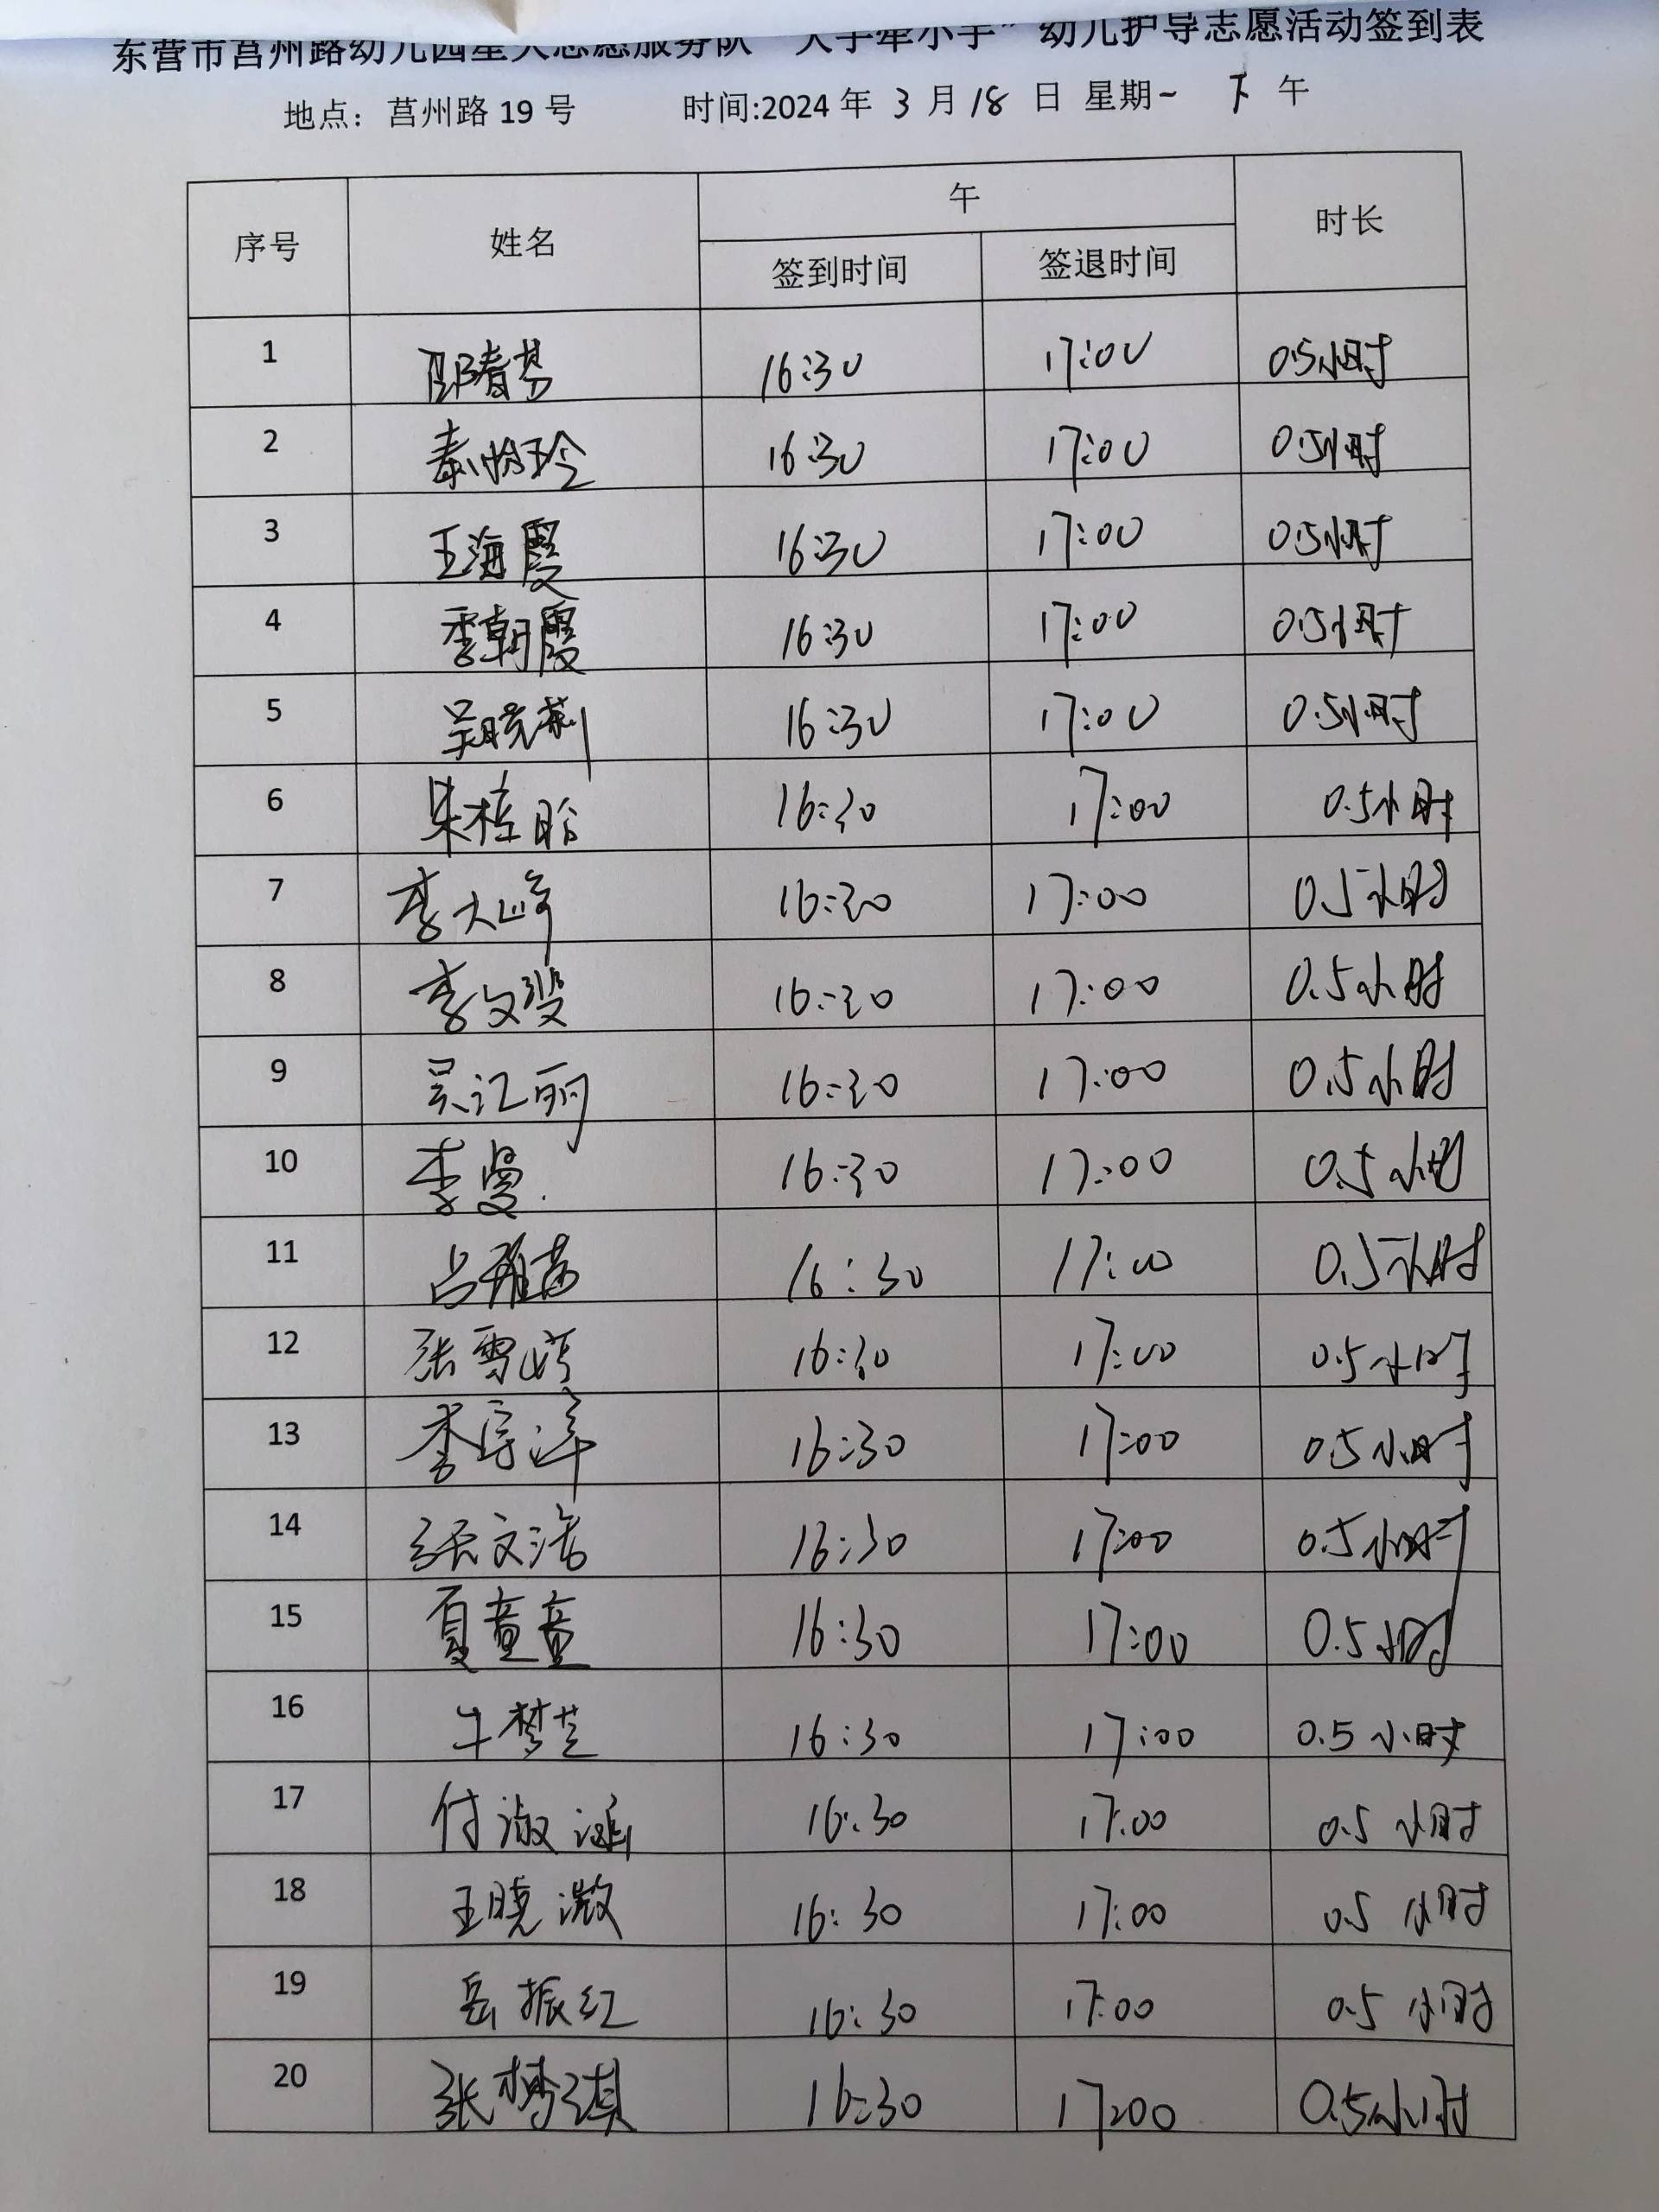 东营市莒州路幼儿园星火志愿服务队“大手牵小手”幼儿护导志愿活动签到表
地点：莒州路 19 号 时间:2024 年 3 月 18 日 星期一 下 午
序号 姓名 午 时长
签到时间 签退时间
1 邵春芬 16:30 17:00 0.5小时
2 秦怡玲 16:30 17:00 0.5小时
3 王海霞 16:30 17:00 0.5小时
4 李朝霞 16:30 17:00 0.5小时
5 吴晓莉 16:30 17:00 0.5小时
6 朱桂晗 16:30 17:00 0.5小时
7 李大峰 16:30 17:00 0.5小时
8 李文斐 16:30 17:00 0.5小时
9 吴江丽 16:30 17:00 0.5小时
10 李曼 16:30 17:00 0.5小时
11 吕雅茜 16:30 17:00 0.5小时
12 张雪婷 16:30 17:00 0.5小时
13 李宗泽 16:30 17:00 0.5小时
14 张文浩 16:30 17:00 0.5小时
15 夏童童 16:30 17:00 0.5小时
16 牛梦芝 16:30 17:00 0.5小时
17 付淑 16:30 17:00 0.5小时
18 王晓溦 16:30 17:00 0.5小时
19 岳振红 16:30 17:00 0.5小时
20 张梦琪 16:30 17:00 0.5小时